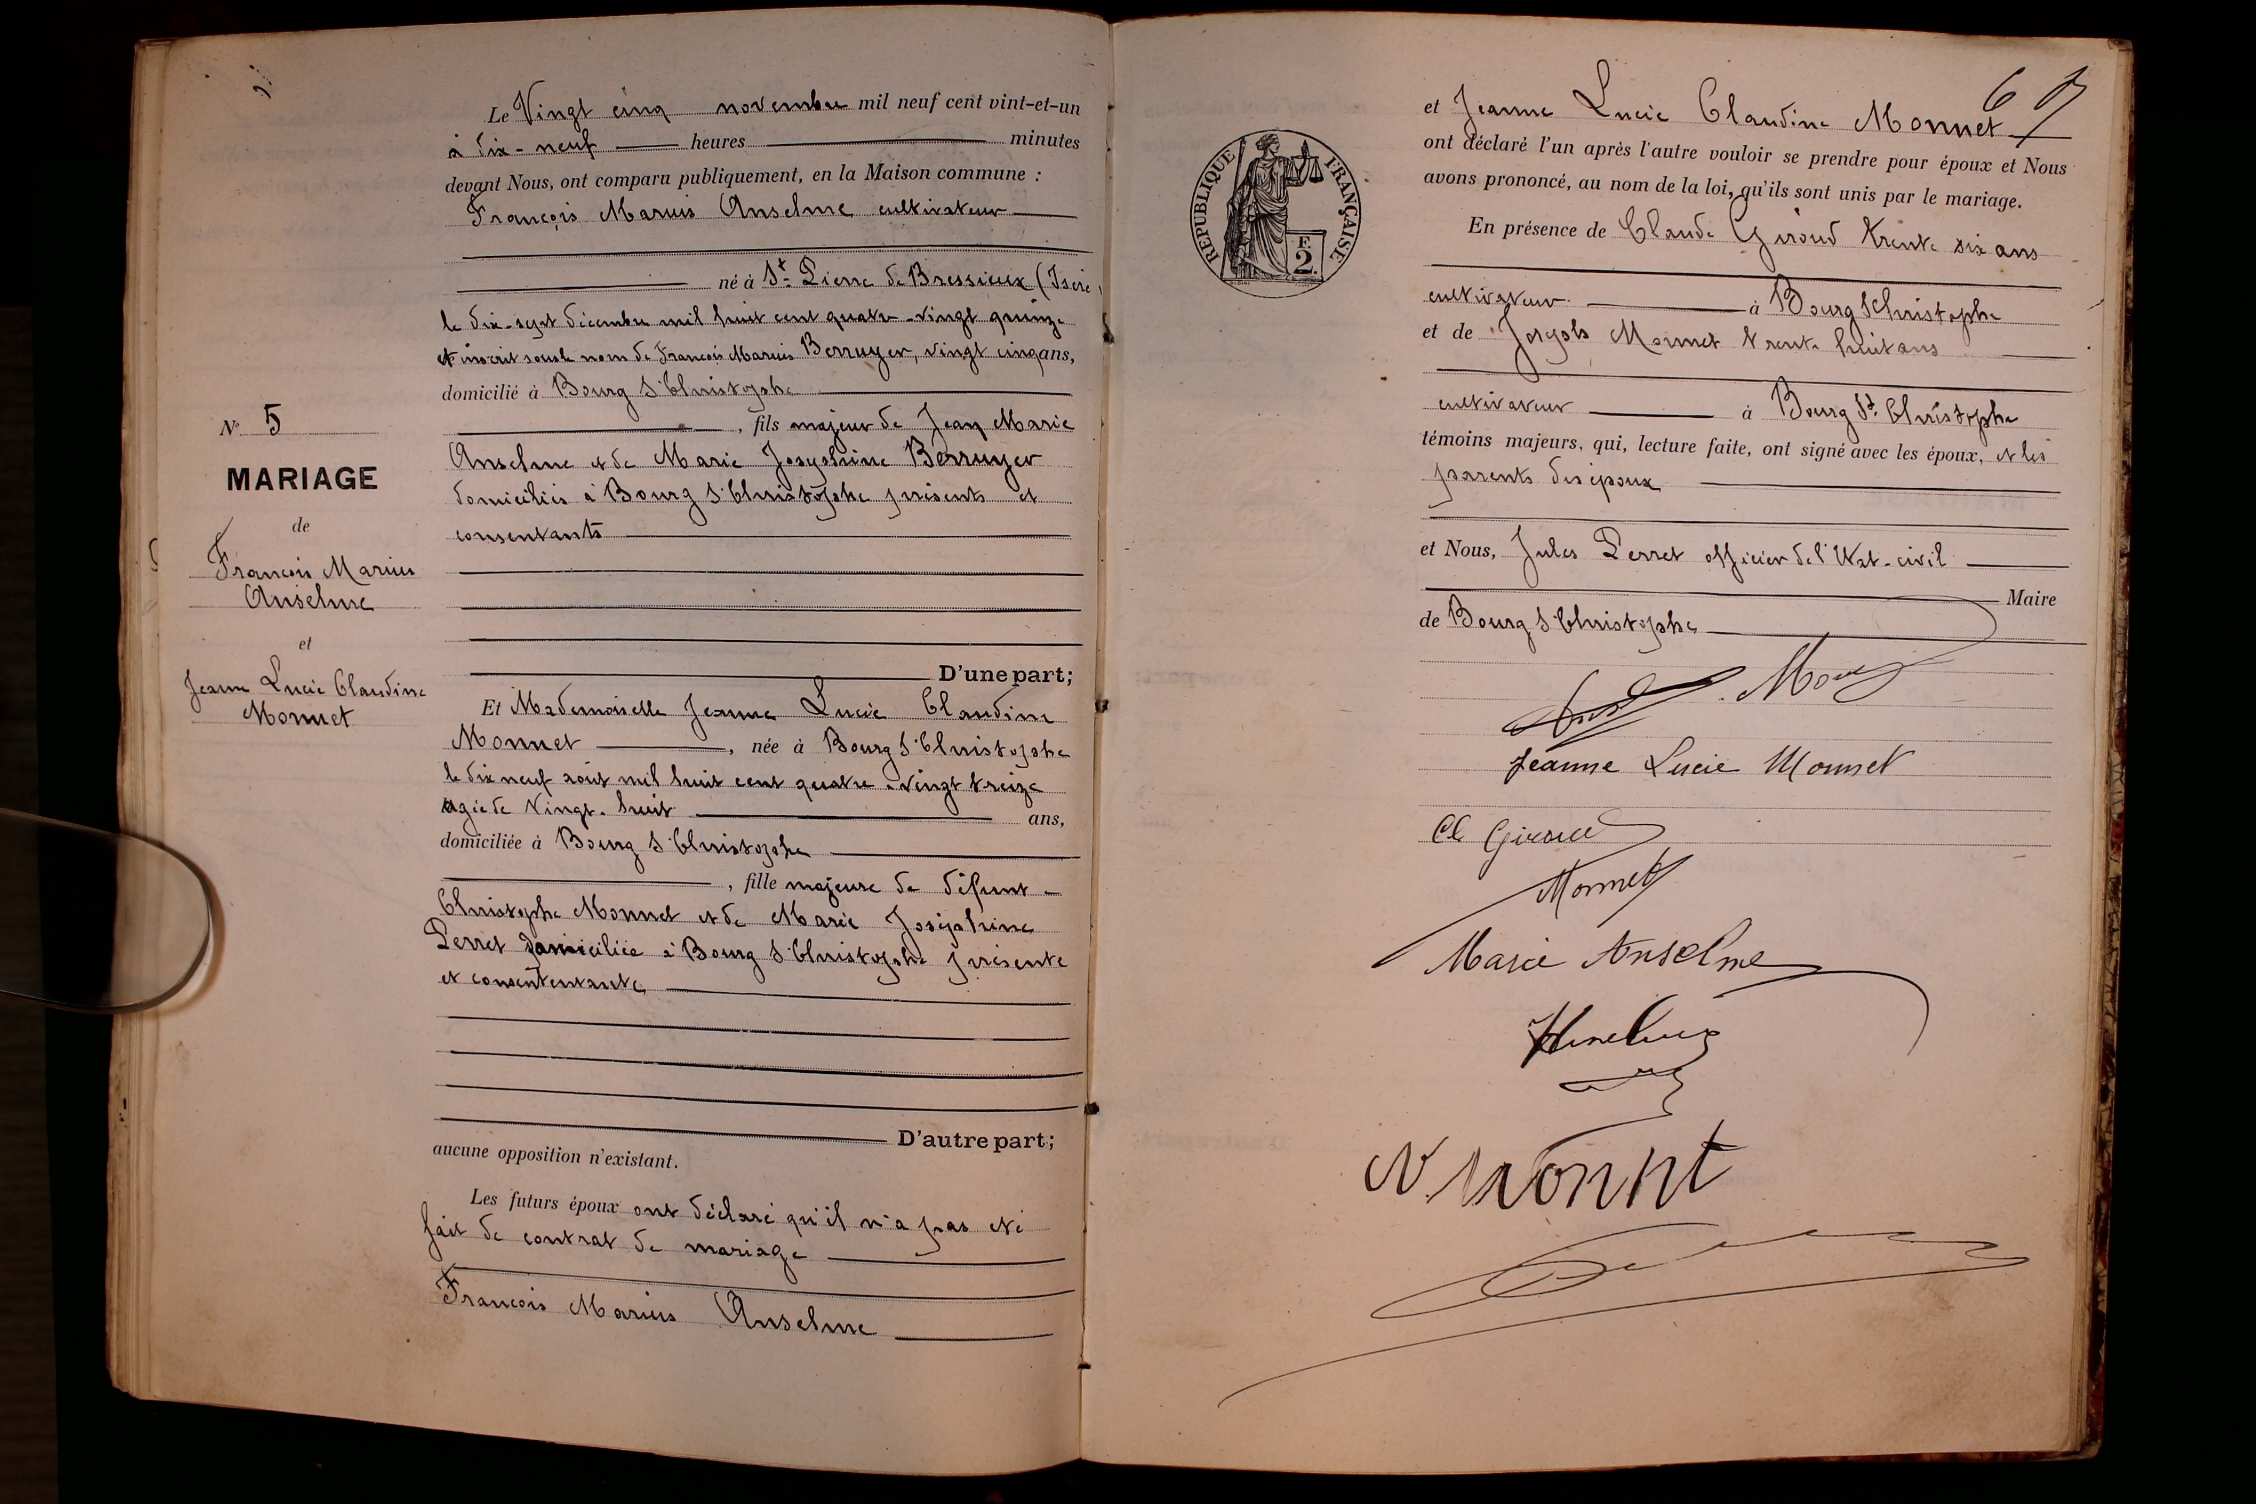 Le Vingt cinq novembre mil neuf cent vint-et-un
à dix-neuf heures minutes
devant Nous, ont comparu publiquement, en la Maison commune :
François Marius Anselme cultivateur
né à St Pierre de Bressieux (Isère
le dix-sept décembre mil huit cent quatre-vingt quinze
et inscrit sous le nom de François Marius Berruyer, vingt cinq ans,
domicilié à Bourg St Christophe
, fils majeur de Jean Marie
Anselme et de Marie Josephine Berruyer
domiciliés à Bourg St Christophe présents et
consentants
D'une part;
Et Mademoiselle Jeanne Lucie Claudine
Monnet , née à Bourg St Christophe
le dix neuf août mil huit cent quatre-vingt treize
agée de Vingt-huit ans,
domiciliée à Bourg St Christophe
, fille majeure de défunt
Christophe Monnet et de Marie Joséphine
Perret domiciliée à Bourg St Christophe présente
et consententante
D'autre part;
aucune opposition n'existant.
Les futurs époux ont déclaré qu'il n'a pas été
fait de contrat de mariage
François Marius Anselme
N° 5
MARIAGE
de
François Marius
Anselme
et
Jeanne Lucie Claudine
Monnet
67
RÉPUBLIQUE FRANÇAISE
F.
2.
et Jeanne Lucie Claudine Monnet
ont déclaré l'un après l'autre vouloir se prendre pour époux et Nous
avons prononcé, au nom de la loi, qu'ils sont unis par le mariage.
En présence de Claude Giroud trente six ans
cultivateur à Bourg St Christophe
et de Joseph Monnet trente huit ans
cultivateur à Bourg St Christophe
témoins majeurs, qui, lecture faite, ont signé avec les époux, et les
parents des époux
et Nous, Jules Perret officier de l'état-civil
Maire
de Bourg St Christophe
Jeanne Lucie Monnet
Cl Giroud
Monnet
Marie Anselme